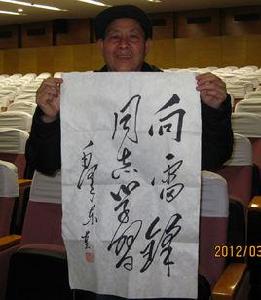 向雷锋
同志学习
毛泽东
2012/03